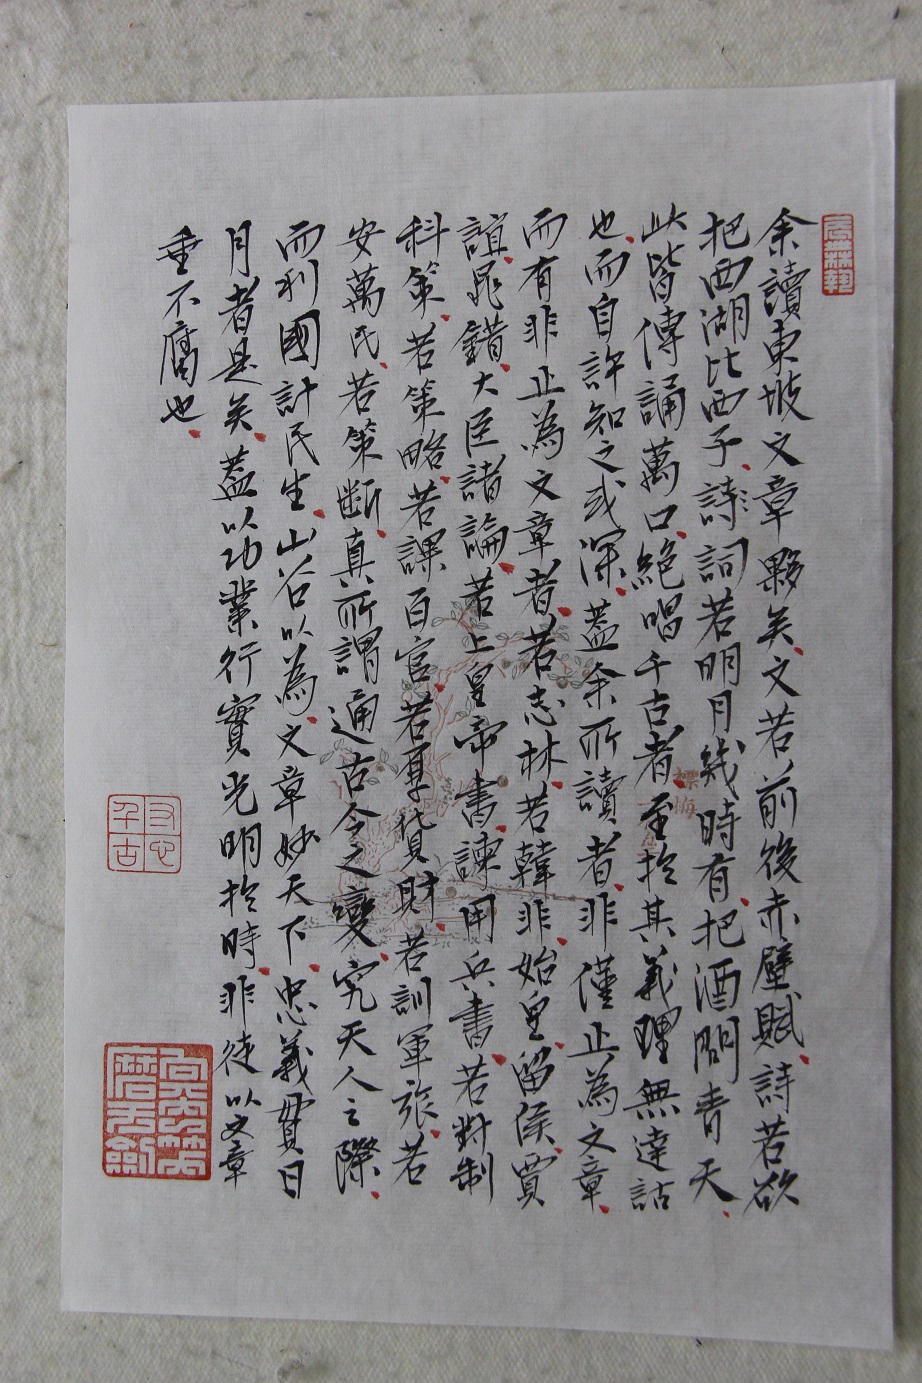 余讀東坡文章夥矣、文若前後赤壁賦、詩若欲
把西湖比西子、詩詞若明月幾時有、把酒問青天、
此皆傳誦萬口、絕唱千古者、至於其義理無達詁
也、而自許知之或深、蓋余所讀者、非僅止為文章、
而有非止為文章者、若志林、若韓非、始皇、留侯、賈
誼、晁錯、大臣諸論、若上皇帝書、諫用兵書、若對制
科策、若策略、若課百官、若厚貨財、若訓軍旅、若
安萬民、若策斷、真所謂通古今之變、究天人之際、
而利國計民生、山谷以為、文章妙天下、忠義貫日
月者是矣、蓋以功業行實光明於時、非徒以文章
垂不腐也、
標梅